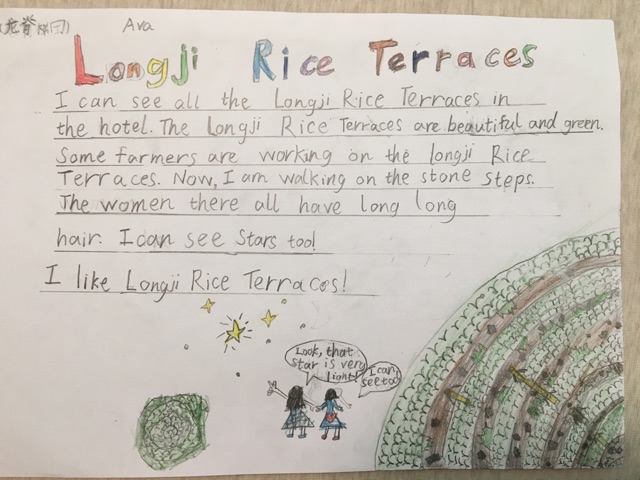 Ava
Longji Rice Terraces
I can see all the Longji Rice Terraces in
the hotel. The Longji Rice Terraces are beautiful and green.
Some farmers are working on the longji Rice
Terraces. Now, I am walking on the stone steps.
The women there all have long long
hair. I can see Stars too!
I like Longji Rice Terraces!
Look, that
star is very
light!
I can
see too